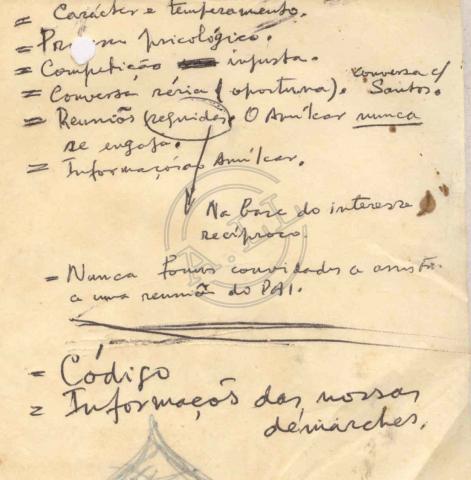 = Carácter e temperamento.
= Processo psicológico.
= Competição injusta.
= Conversa séria (oportuna). conversa c/ Santos.
= Reuniões seguidas. O Amílcar nunca
se engaja.
= Informação Amílcar.
Na base do interesse
recíproco.
= Nunca fomos convidados a assistir
a uma reunião do PAI.
= Código
= Informações das nossas
démarches.